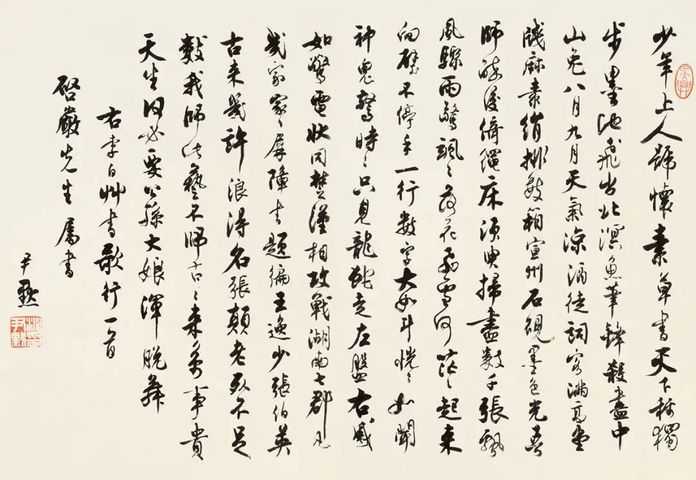 少年上人號懷素草書天下稱獨
步墨池飛出北溟魚筆鋒殺盡中
山兔八月九月天氣涼酒徒詞客滿高堂
牋麻素絹排數箱宣州石硯墨色光吾
師醉後倚繩床須臾掃盡數千張飄
風驟雨驚颯〻落花飛雪何茫〻起來
向壁不停手一行數字大如斗恍〻如聞
神鬼驚時〻只見龍蛇走左盤右蹙
如驚電狀同楚漢相攻戰湖南七郡凡
幾家家〻屏障書題徧王逸少張伯英
古來幾許浪得名張顛老死不足
數我師此藝不師古〻來萬事貴
天生何必要公孫大娘渾脫舞
右李白艸書歌行一首
啓嚴先生屬書
尹默